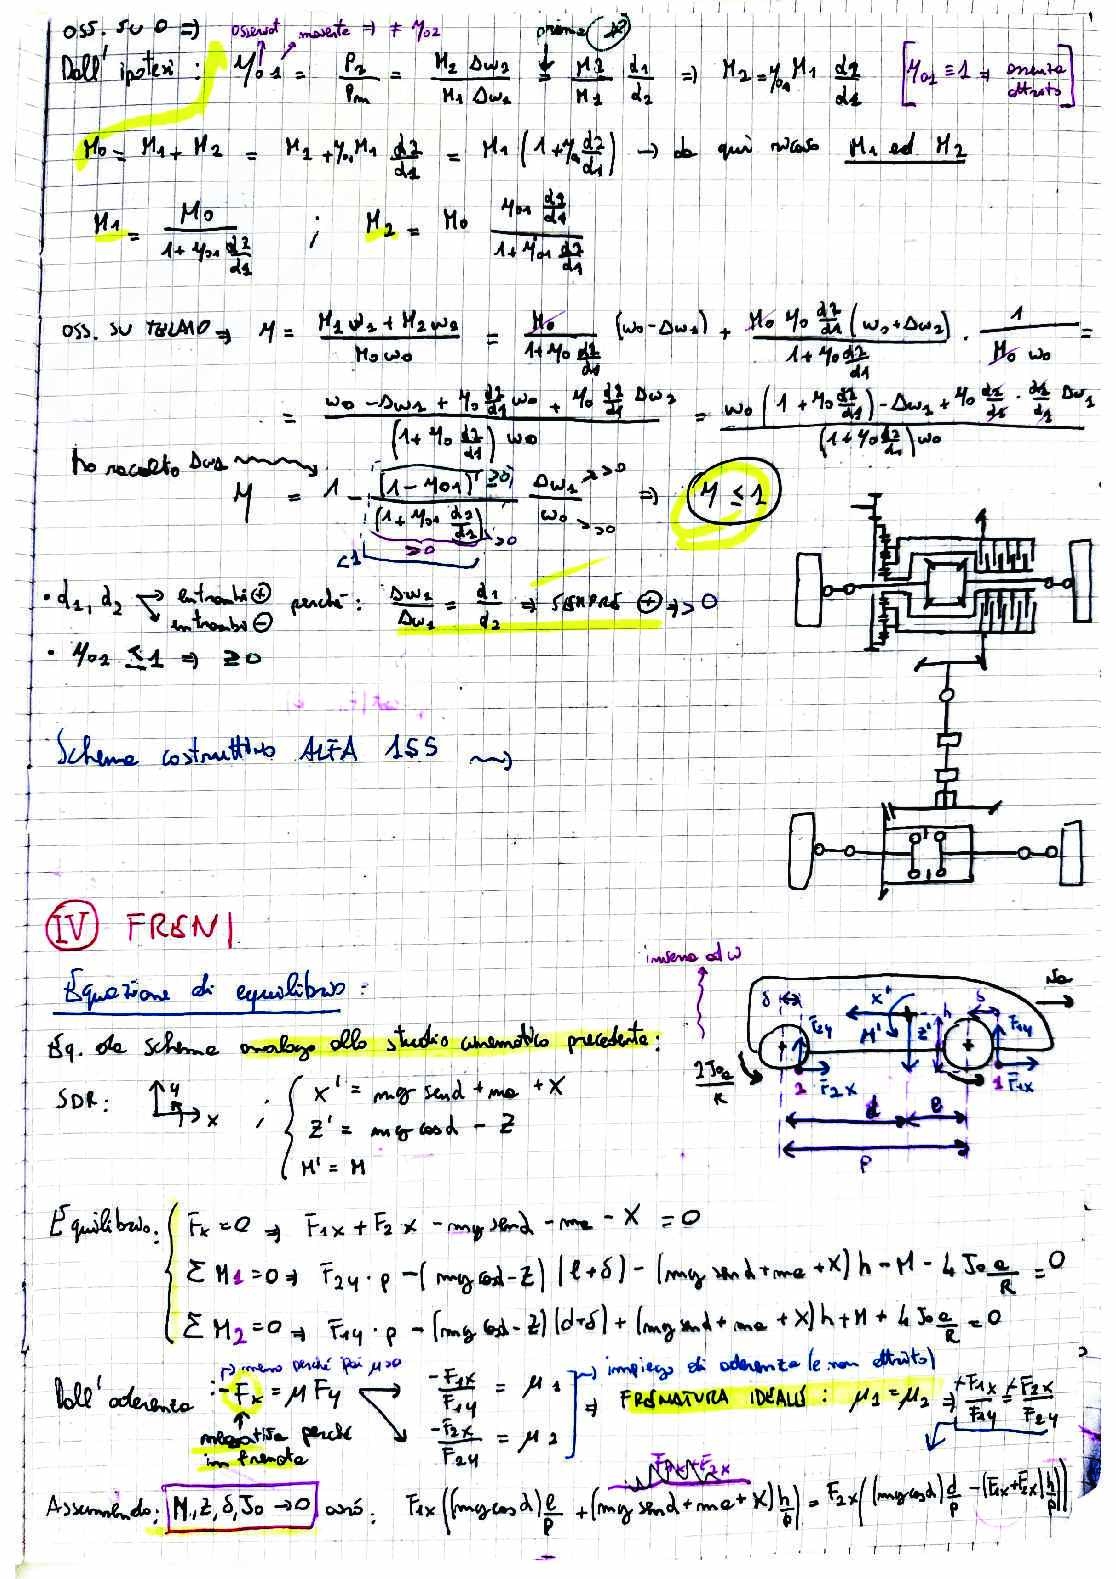 oss. su O ⇒ osservat movente ⇒ ≠ η02 prima (*)
Dall' ipotesi : η01 = P2/Pm = M2 Δω2 / M1 Δω1 = M2/M1 d1/d2 ⇒ M2 = η01 M1 d2/d1 [η01 ≡ 1 ⇒ assenza attrito]
M0 = M1 + M2 = M1 + η01 M1 d2/d1 = M1 (1 + η01 d2/d1) → da qui ricavo M1 ed M2
M1 = M0 / (1 + η01 d2/d1) ; M2 = M0 (η01 d2/d1) / (1 + η01 d2/d1)
oss. su TELAIO ⇒ η = (M1 ω1 + M2 ω2) / (M0 ω0) = M0 / (1 + η0 d2/d1) (ω0 - Δω1) + M0 η0 d2/d1 (ω0 + Δω2) / (1 + η0 d2/d1) · 1 / (M0 ω0) =
= (ω0 - Δω1 + η0 d2/d1 ω0 + η0 d2/d1 Δω2) / ((1 + η0 d2/d1) ω0) = (ω0 (1 + η0 d2/d1) - Δω1 + η0 d2/d1 · d1/d2 Δω1) / ((1 + η0 d2/d1) ω0)
ho raccolto Δω1
η = 1 - (1 - η01) ≥0 / (1 + η01 d2/d1) >0 Δω1 >0 / ω0 >0 ⇒ η ≤ 1
<1 >0
• d1, d2 → entrambi ⊕ perché : Δω2/Δω1 = d1/d2 ⇒ SEMPRE ⊕ ⇒ > 0
entrambi ⊖
• η02 ≤ 1 ⇒ ≥ 0
Schema costruttivo ALFA 155
IV FRENI
inverso ad ω
Equazione di equilibrio :
Eq. da schema analogo allo studio cinematico precedente :
SDR : y x ; { X' = mg senα + ma + X
Z' = mg cosα - Z
M' = M
δ X' F2y M' Z' h δ F1y Na
2J0a/R 2 F2x 1 F1x
d e
p
Equilibrio : { Fx = 0 ⇒ F1x + F2x - mg senα - ma - X = 0
Σ M1 = 0 ⇒ F2y · p - (mg cosα - Z) (e + δ) - (mg senα + ma + X) h - M - 4 J0 a/R = 0
Σ M2 = 0 ⇒ F1y · p - (mg cosα - Z) (d - δ) + (mg senα + ma + X) h + M + 4 J0 a/R = 0
meno perché poi μ>0
Dall' aderenza : -Fx = μ Fy → -F1x/F1y = μ1 → impiego di aderenza (e non attrito)
-F2x/F2y = μ2 ⇒ FRENATURA IDEALE : μ1 = μ2 ⇒ +F1x/F1y = +F2x/F2y
negativa perché
in frenata
F1x+F2x
Assumendo : M, Z, δ, J0 → 0 così : F1x ((mg cosα) e/p + (mg senα + ma + X) h/p) = F2x ((mg cosα) d/p - (F1x + F2x) h/p)